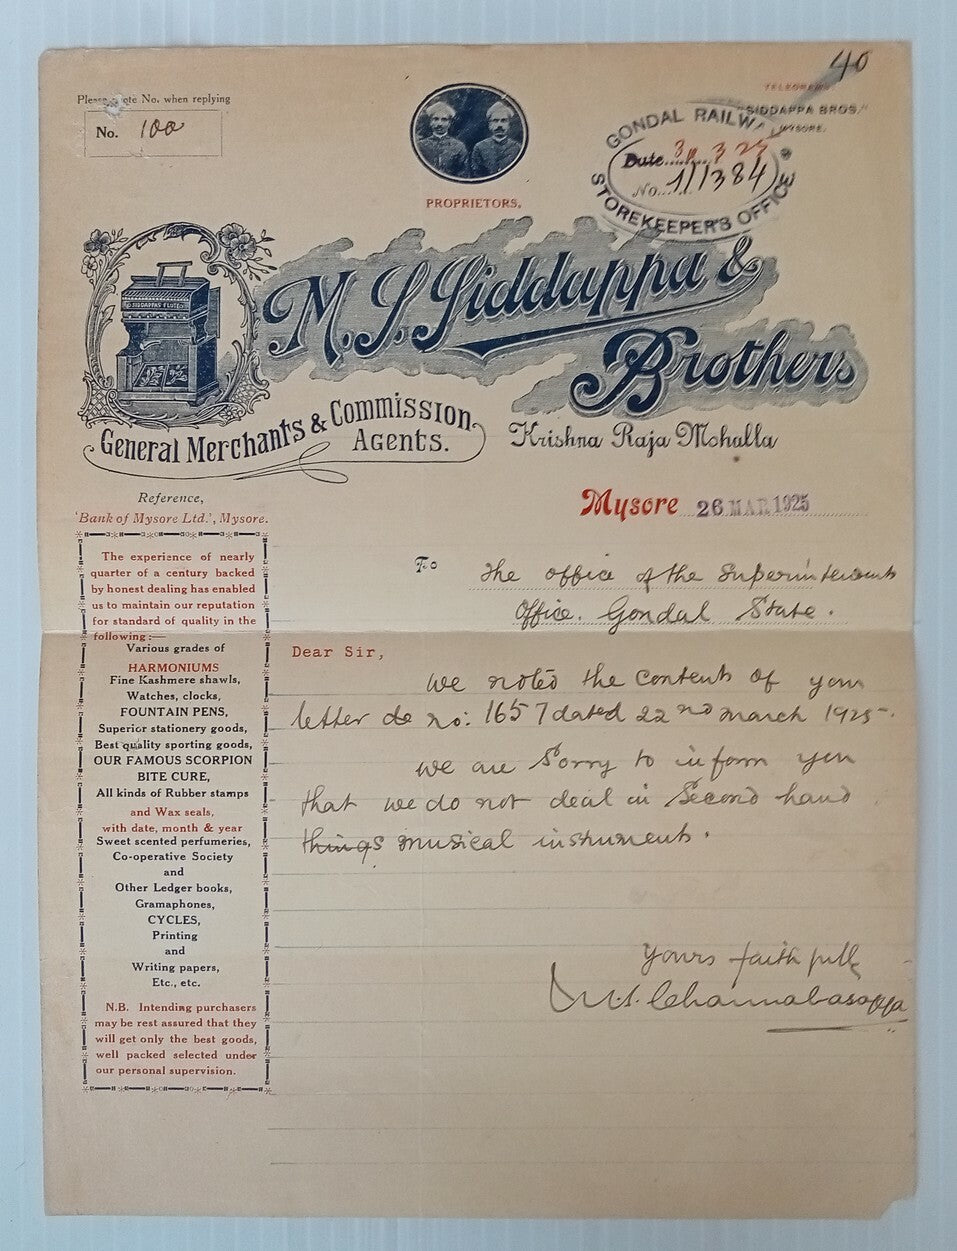 40
Please quote No. when replying
No. 100
TELEGRAMS
"SIDDAPPA BROS."
MYSORE.
GONDAL RAILWAY
Date
No. 1/1384
STOREKEEPER'S OFFICE
PROPRIETORS.
SIDDAPPAS FLUTE
M. S. Siddappa &
Brothers
General Merchants & Commission
Agents.
Krishna Raja Mohalla
Reference,
'Bank of Mysore Ltd.', Mysore.
Mysore 26 MAR 1925
The experience of nearly
quarter of a century backed
by honest dealing has enabled
us to maintain our reputation
for standard of quality in the
following :—
Various grades of
HARMONIUMS
Fine Kashmere shawls,
Watches, clocks,
FOUNTAIN PENS,
Superior stationery goods,
Best quality sporting goods,
OUR FAMOUS SCORPION
BITE CURE,
All kinds of Rubber stamps
and Wax seals,
with date, month & year
Sweet scented perfumeries,
Co-operative Society
and
Other Ledger books,
Gramaphones,
CYCLES,
Printing
and
Writing papers,
Etc., etc.
N.B. Intending purchasers
may be rest assured that they
will get only the best goods,
well packed selected under
our personal supervision.
To
The office of the Superintendents
Office. Gondal State.
Dear Sir,
We noted the contents of your
letter de no: 1657 dated 22nd march 1925.
We are Sorry to inform you
that we do not deal in Second hand
things musical instruments.
Yours faithfully
M.S. Channabasappa